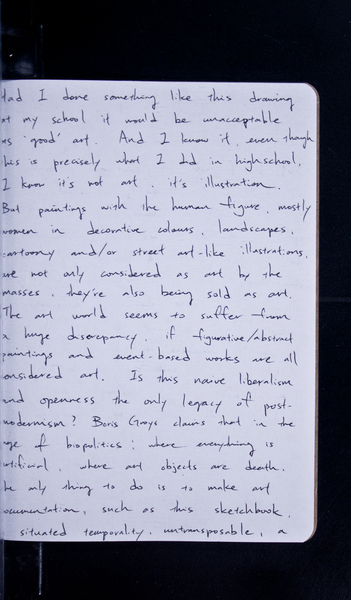 Had I done something like this drawing
at my school it would be unacceptable
as "good" art. And I know it, even though
this is precisely what I did in highschool.
I know it's not art, it's illustration.
But paintings with the human figure, mostly
women in decorative colours, landscapes,
cartoony and/or street art-like illustrations,
are not only considered as art by the
masses, they're also being sold as art.
The art world seems to suffer from
a huge discrepancy, if figurative/abstract
paintings and event-based works are all
considered art. Is this naive liberalism
and openness the only legacy of post-
modernism? Boris Groys claims that in the
age of biopolitics: where everything is
artificial, where art objects are death,
the only thing to do is to make art
documentation, such as this sketchbook.
situated temporality, untransposable, a